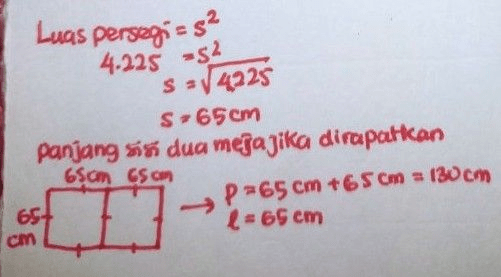 Luas persegi = s²
4.225 = s²
s = √4.225
s = 65 cm
panjang sisi dua meja jika dirapatkan
65 cm 65 cm
65 cm
→ p = 65 cm + 65 cm = 130 cm
l = 65 cm